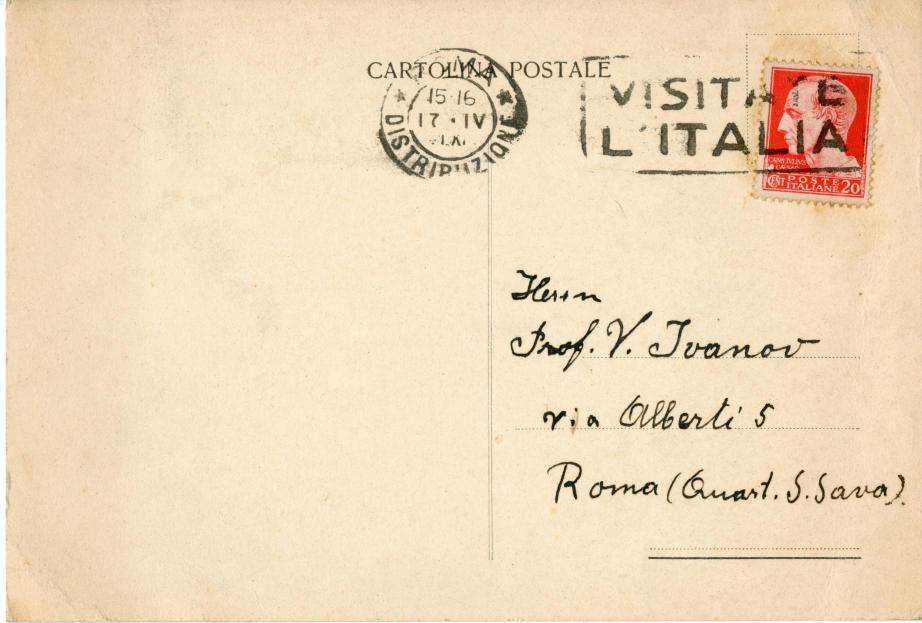 CARTOLINA POSTALE
15·16
17·IV
DISTRIBUZIONE
VISITATE
L'ITALIA
CAIVS IVLIVS
CAESAR
CENT POSTE
ITALIANE 20
Herrn
Prof. V. Ivanov
via Alberti 5
Roma (Quart. S. Sava).